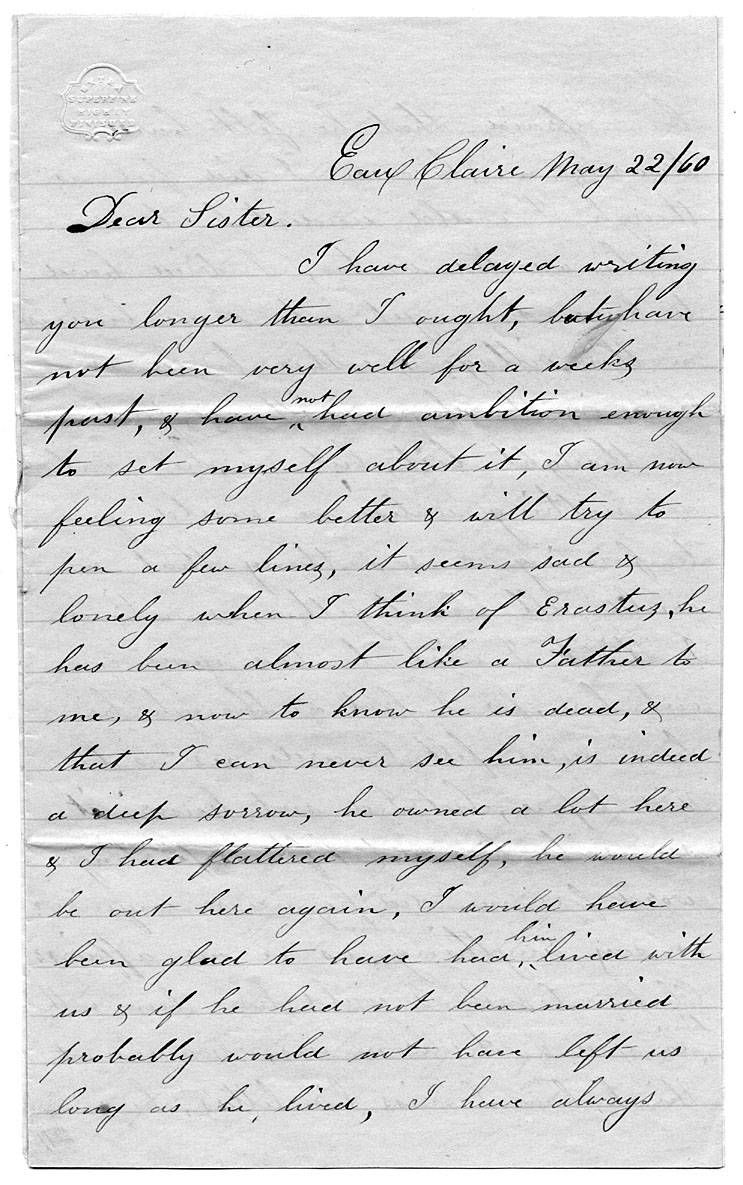 SUPERFINE
HIGHLY
FINISHED
Eau Claire May 22/60
Dear Sister.
I have delayed writing
you longer than I ought, but have
not been very well for a weeks
past, & have not had ambition enough
to set myself about it, I am now
feeling some better & will try to
pen a few lines, it seems sad &
lonely when I think of Erastus, he
has been almost like a Father to
me, & now to know he is dead, &
that I can never see him, is indeed
a deep sorrow, he owned a lot here
& I had flattered myself, he would
be out here again, I would have
been glad to have had him lived with
us & if he had not been married
probably would not have left us
long as he lived, I have always